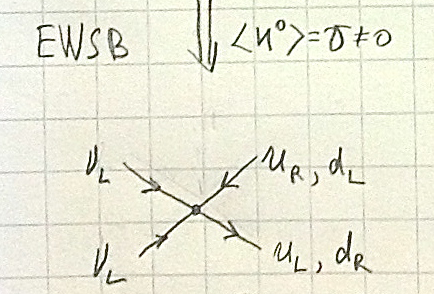 EWSB ⟨H⁰⟩=υ≠0
ν_L u_R, d_L
ν_L u_L, d_R